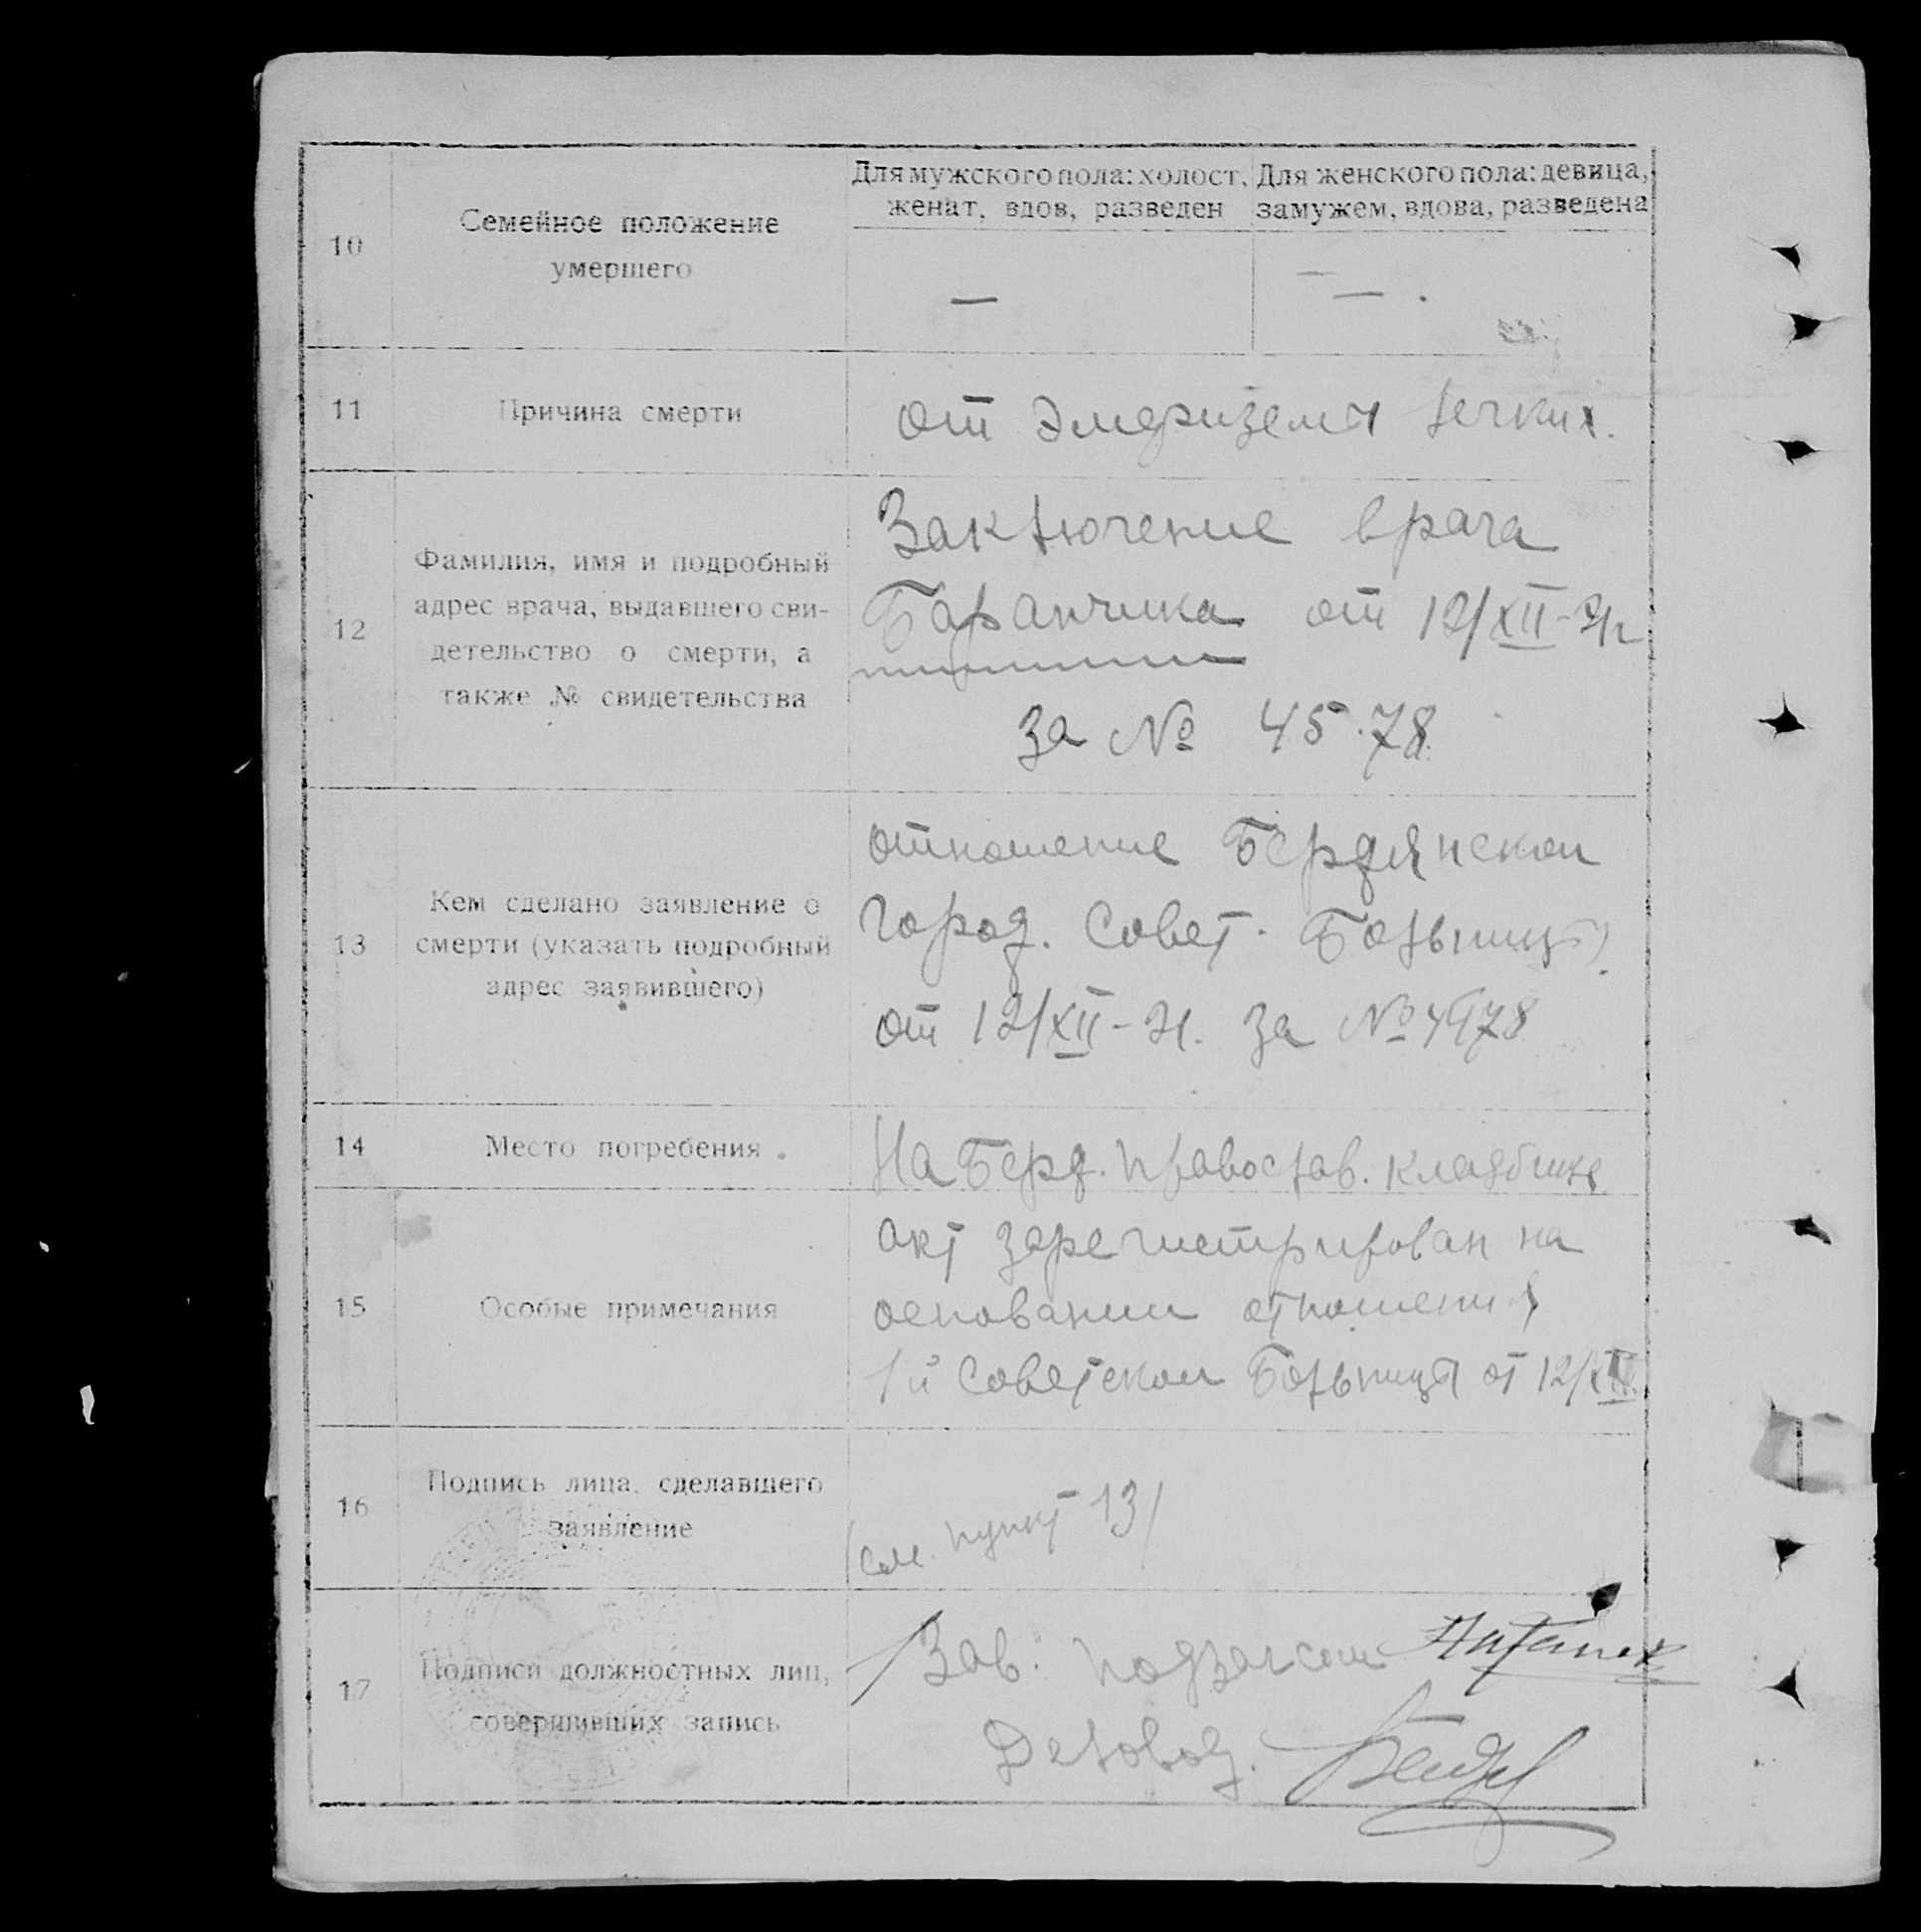 10
Семейное положение
умершего
Для мужского пола: холост,
женат, вдов, разведен
Для женского пола: девица,
замужем, вдова, разведена
—
—
11
Причина смерти
от эмфиземы легких.
12
Фамилия, имя и подробный
адрес врача, выдавшего сви-
детельство о смерти, а
также № свидетельства
Заключение врача
Баранчика от 12/XII-
за № 45.78.
13
Кем сделано заявление о
смерти (указать подробный
адрес заявившего)
отношение Бердянской
Город. Совет. Больницы
от 12/XII-21. за №
14
Место погребения
На Берд. православ. кладбище
15
Особые примечания
Акт зарегистрирован на
основании отношения
1й Советской Больницы от 12/XII.
16
Подпись лица, сделавшего
заявление
/см. пункт 13/
17
Подписи должностных лиц,
совершивших запись
Зав. подзагсом
Деловод.